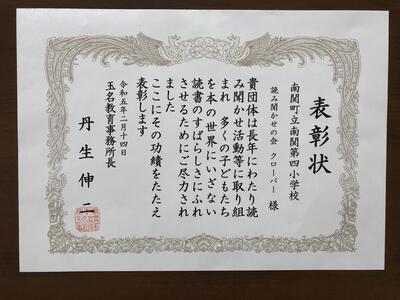 表彰状
南関町立南関第四小学校
読み聞かせの会 クローバー 様
貴団体は長年にわたり読
み聞かせ活動等に取り組
まれ 多くの子どもたち
を本の世界にいざない
読書のすばらしさにふれ
させるためにご尽力され
ました
ここにその功績をたたえ
表彰します
令和五年二月十四日
玉名教育事務所長
丹生伸二